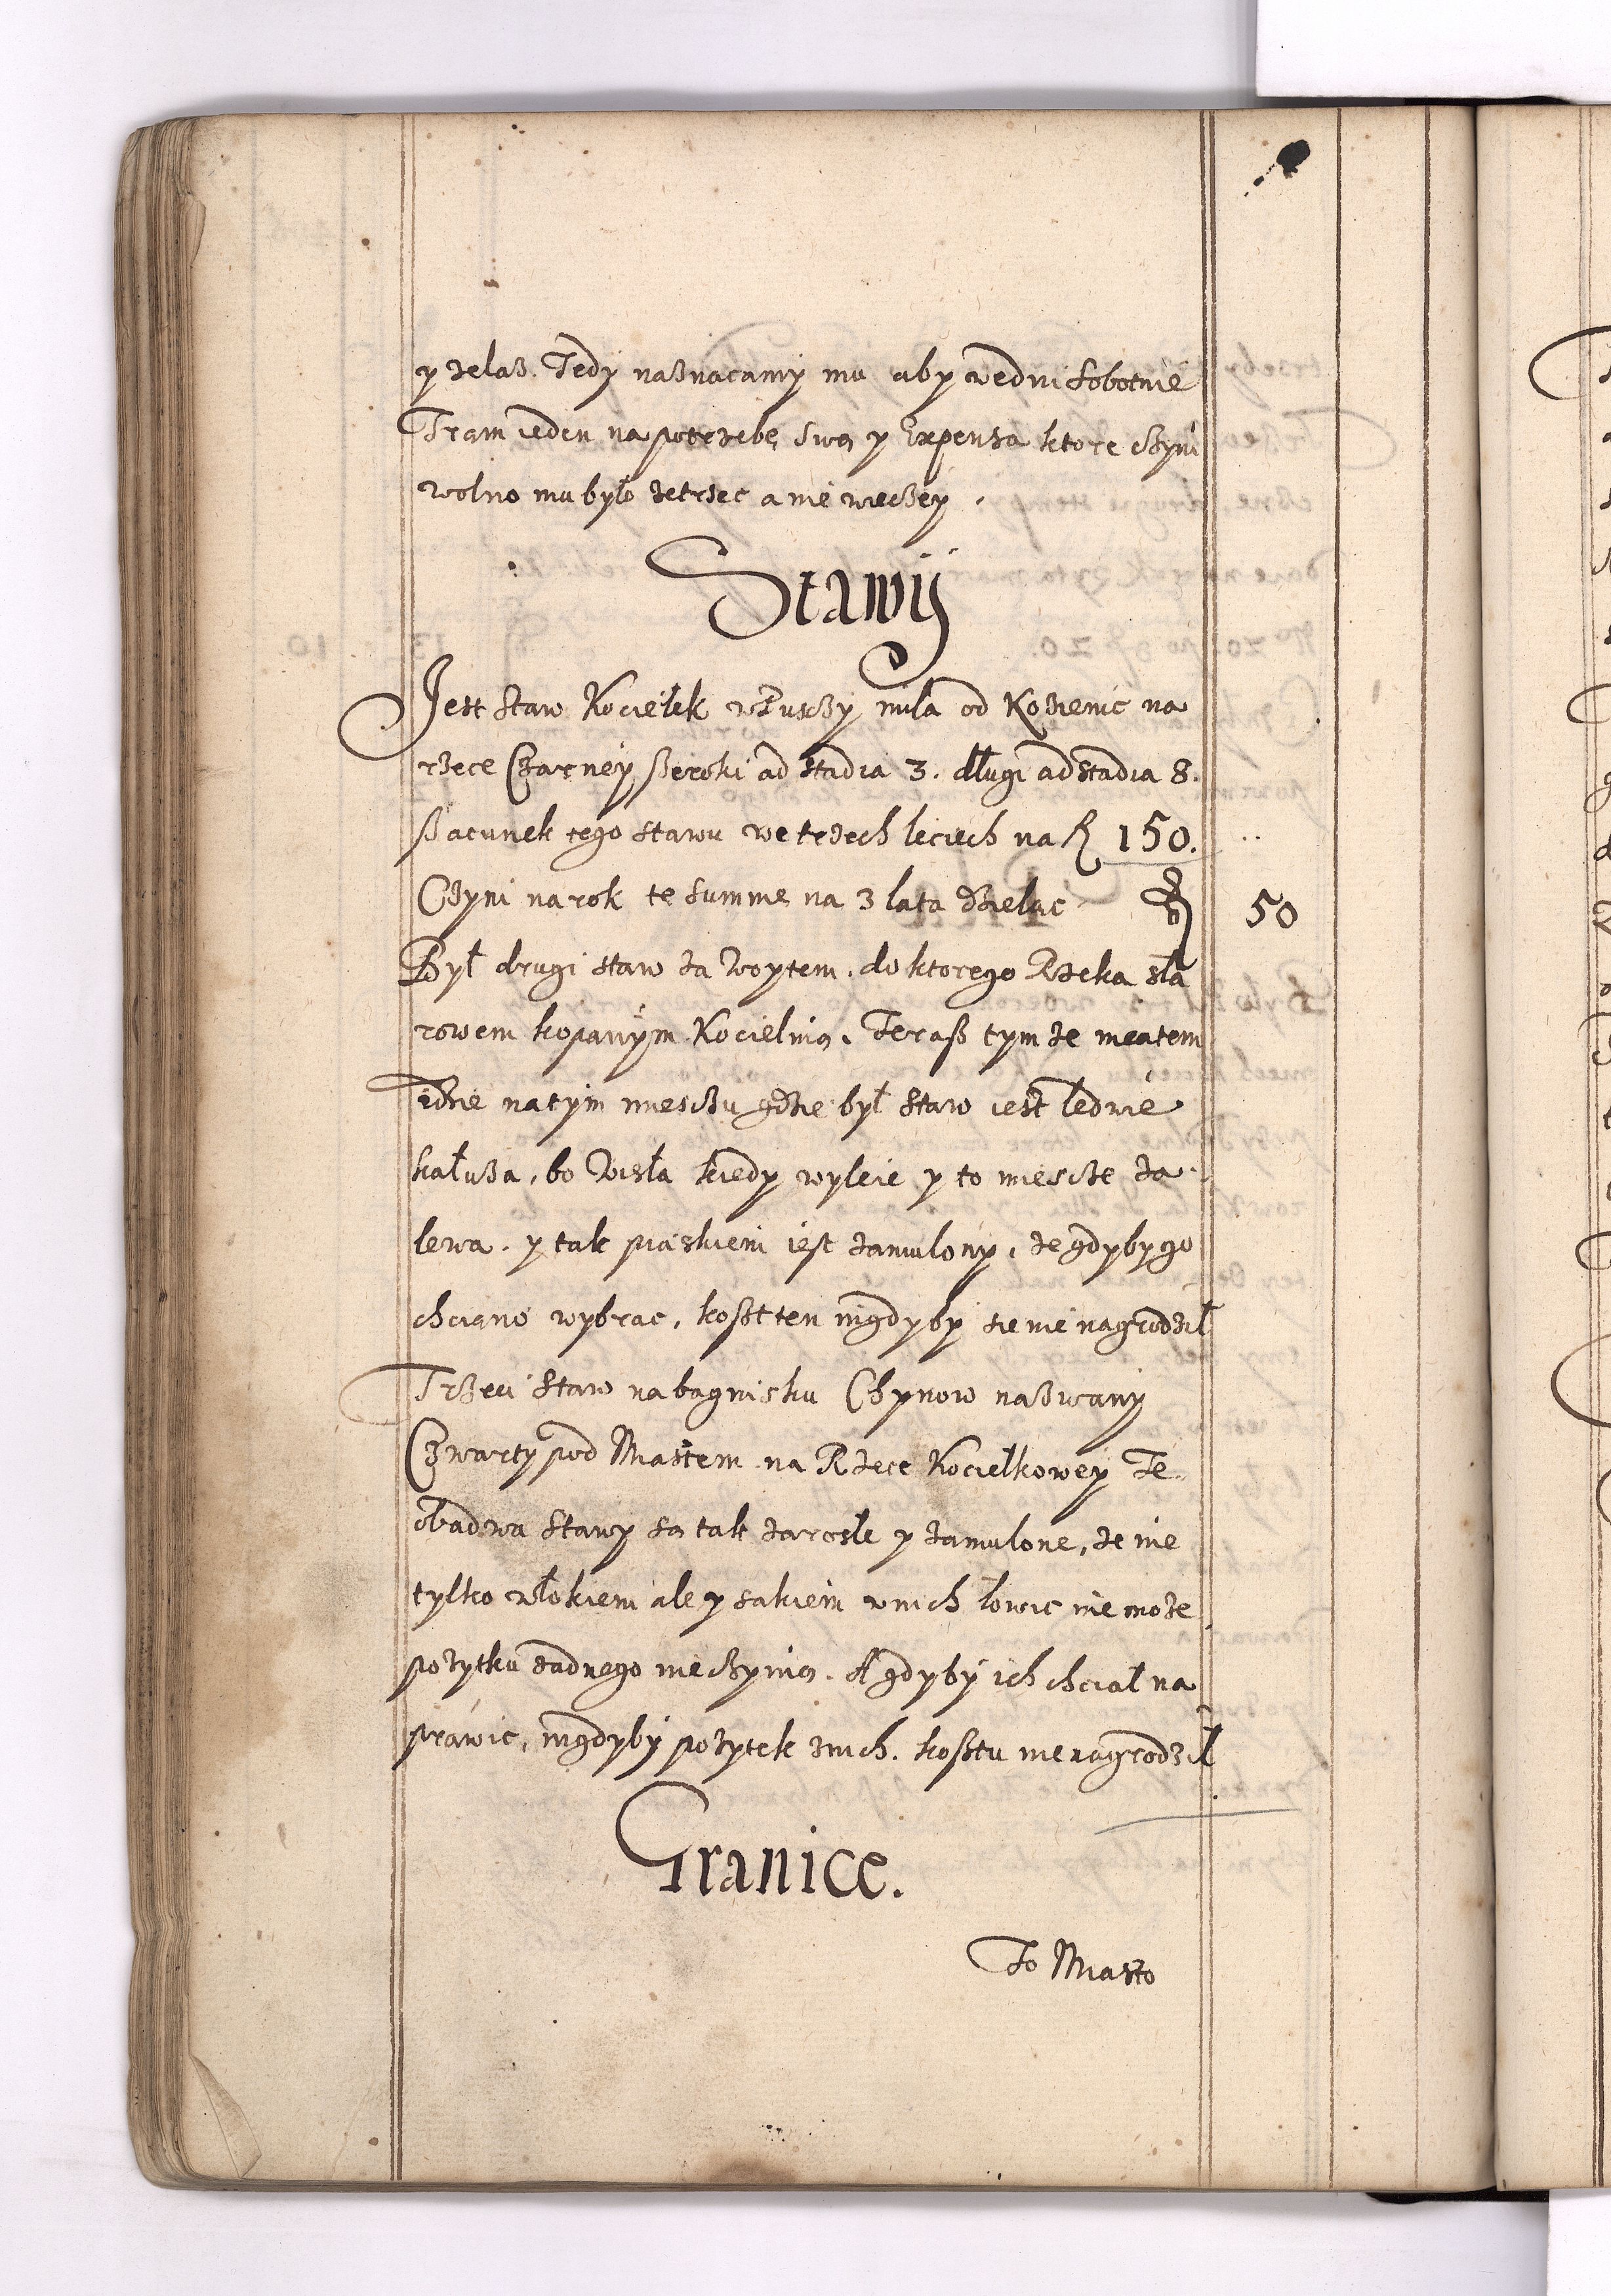 y zelaß. Tedy naßnacamy mu aby wedni Sobotnie
Tram ieden na potrzebę swą y Expensa ktore cżyni
wolno mu było zetrzec a nie wieczey.
Stawÿ
Jest staw Kociełek w Puscży mila od Kozienic na
rzece Czarney ßeroki ad stadia 3. długi ad stadia 8.
ßacunek tego stawu we trzech leciech na fl 150.
Czyni na rok te summe na 3 lata dzieląc fl 50
Był drugi staw za Woytem, do ktorego Rzeka sła
rowem kopanym Kocielnią. Teraß tym ze meatem
idzie na tym miescżu gdzie był staw iest ledwie
kałuża, bo Wisła kiedy wyleie y to miescze za
lewa. y tak piaskiem iest zamulony, ze gdyby go
chciano wybrac, koßt ten nigdyby sie nie nagrodził
Trzeci staw na bagnisku Chynow nazwany
Czwarty pod Miastem na Rzece Kociełkowey Te
obadwa stawy są tak zarosłe y zamulone, ze nie
tylko włokiem ale y sakiem w nich łowic nie moze
pożytku żadnego nie czynią. A gdyby ich chciał na
prawic, nigdyby pożytek z nich kosztu nie nagrodził
Granice.
To Miasto